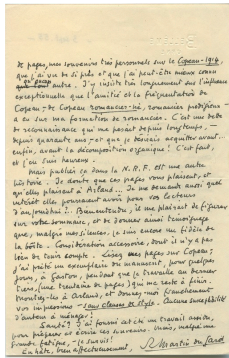 de pages, mes souvenirs très personnels sur le Copeau-1914,
que j'ai vu de si près et que j'ai peut-être mieux connu
que tout autre. J'y insiste très longuement sur l'influence
exceptionnelle que l'amitié et la fréquentation de
Copeau — de Copeau romancier-né, romancier prodigieux —
a eu sur ma formation de romancier. C'est une dette
de reconnaissance qui me pesait depuis longtemps,
depuis quarante ans et que je désirais acquitter avant
enfin, avant la décomposition organique! C'est fait,
et j'en suis heureux.
Mais publier ça dans la N.R.F. est une autre
histoire. Je doute que ces pages vous plaisent, et
qu'elles plairaient à Arland... Je me demande aussi quel
intérêt elles pourraient avoir pour vos lecteurs
d'aujourd'hui?.. Évidemment, il me plairait de figurer
sur votre sommaire, et de donner ainsi témoignage
que, malgré mes silences, je suis encore un fidèle de
la boîte. Considération accessoire, dont il n'y a pas
à tenir compte. Lisez mes pages sur Copeau;
j'ai prêté un exemplaire du manuscrit, pour quelques
jours, à Gaston, pendant que je travaille au dernier
tiers, (une trentaine de pages) qui me reste à finir.
Montrez-les à Arland, et donnez-moi franchement
vos impressions — sans clauses de style. Aucune susceptibilité
d'auteur à ménager!
Santé? J'ai fourni cet été un travail assidu,
pour préparer et écrire ces souvenirs. Mais, malgré une
grande fatigue, — je survis!
En hâte, bien affectueusement,
R. Martin du Gard